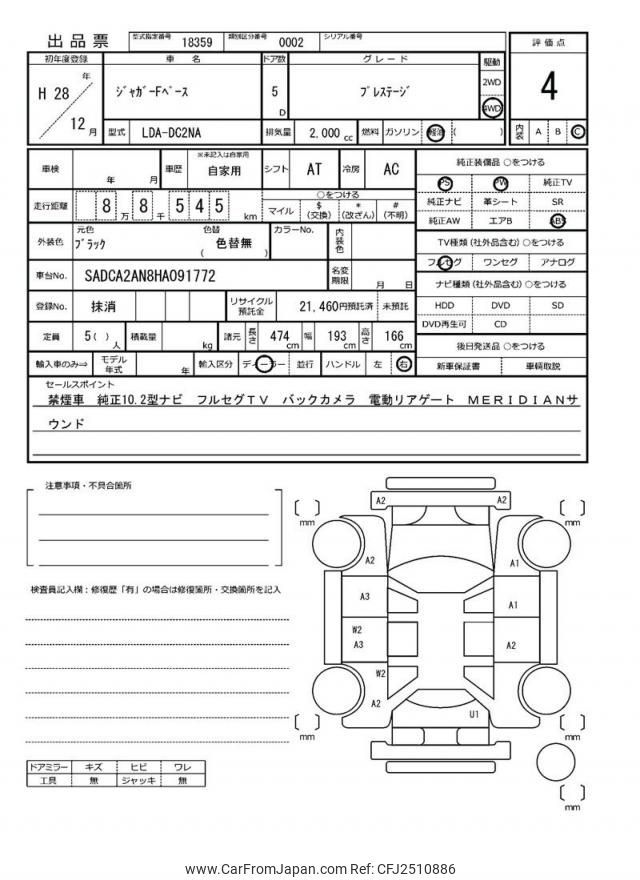 出品票 型式指定番号 18359 類別区分番号 0002 シリアル番号
初年度登録 車名 ドア数 グレード 駆動 評価点
H 28 年 12 月 ジャガーFペース 5 D プレステージ 2WD 4WD 4
型式 LDA-DC2NA 排気量 2,000 cc 燃料 ガソリン 軽油 ( ) 内装 A B C
車検 年 月 車歴 ※未記入は自家用 自家用 シフト AT 冷房 AC 純正装備品 ○をつける
PS PW 純正TV
走行距離 8 万 8 千 5 4 5 km ○をつける
マイル $ (交換) * (改ざん) # (不明)
純正ナビ 革シート SR
純正AW エアB ABS
外装色 元色 ブラック 色替 ( 色替無 ) カラーNo. 内装色
TV種類 (社外品含む) ○をつける
フルセグ ワンセグ アナログ
車台No. SADCA2AN8HA091772 名変期限 月 日
ナビ種類 (社外品含む) ○をつける
登録No. 抹消 リサイクル預託金 21,460円預託済 未預託
HDD DVD SD
DVD再生可 CD
定員 5( ) 人 積載量 kg 諸元 長さ 474 cm 幅 193 cm 高さ 166 cm
後日発送品 ○をつける
輸入車のみ⇒ モデル年式 年 輸入区分 ディーラー 並行 ハンドル 左 右
新車保証書 車輌取説
セールスポイント
禁煙車 純正10.2型ナビ フルセグTV バックカメラ 電動リアゲート MERIDIANサ
ウンド
注意事項・不具合箇所
検査員記入欄：修復歴「有」の場合は修復箇所・交換箇所を記入
A2 A2
mm mm
A2 A1
A3 A1
W2
A3 A2
W2
A2 U1
mm mm
mm
ドアミラー キズ ヒビ ワレ
工具 無 ジャッキ 無
www.CarFromJapan.com Ref: CFJ2510886